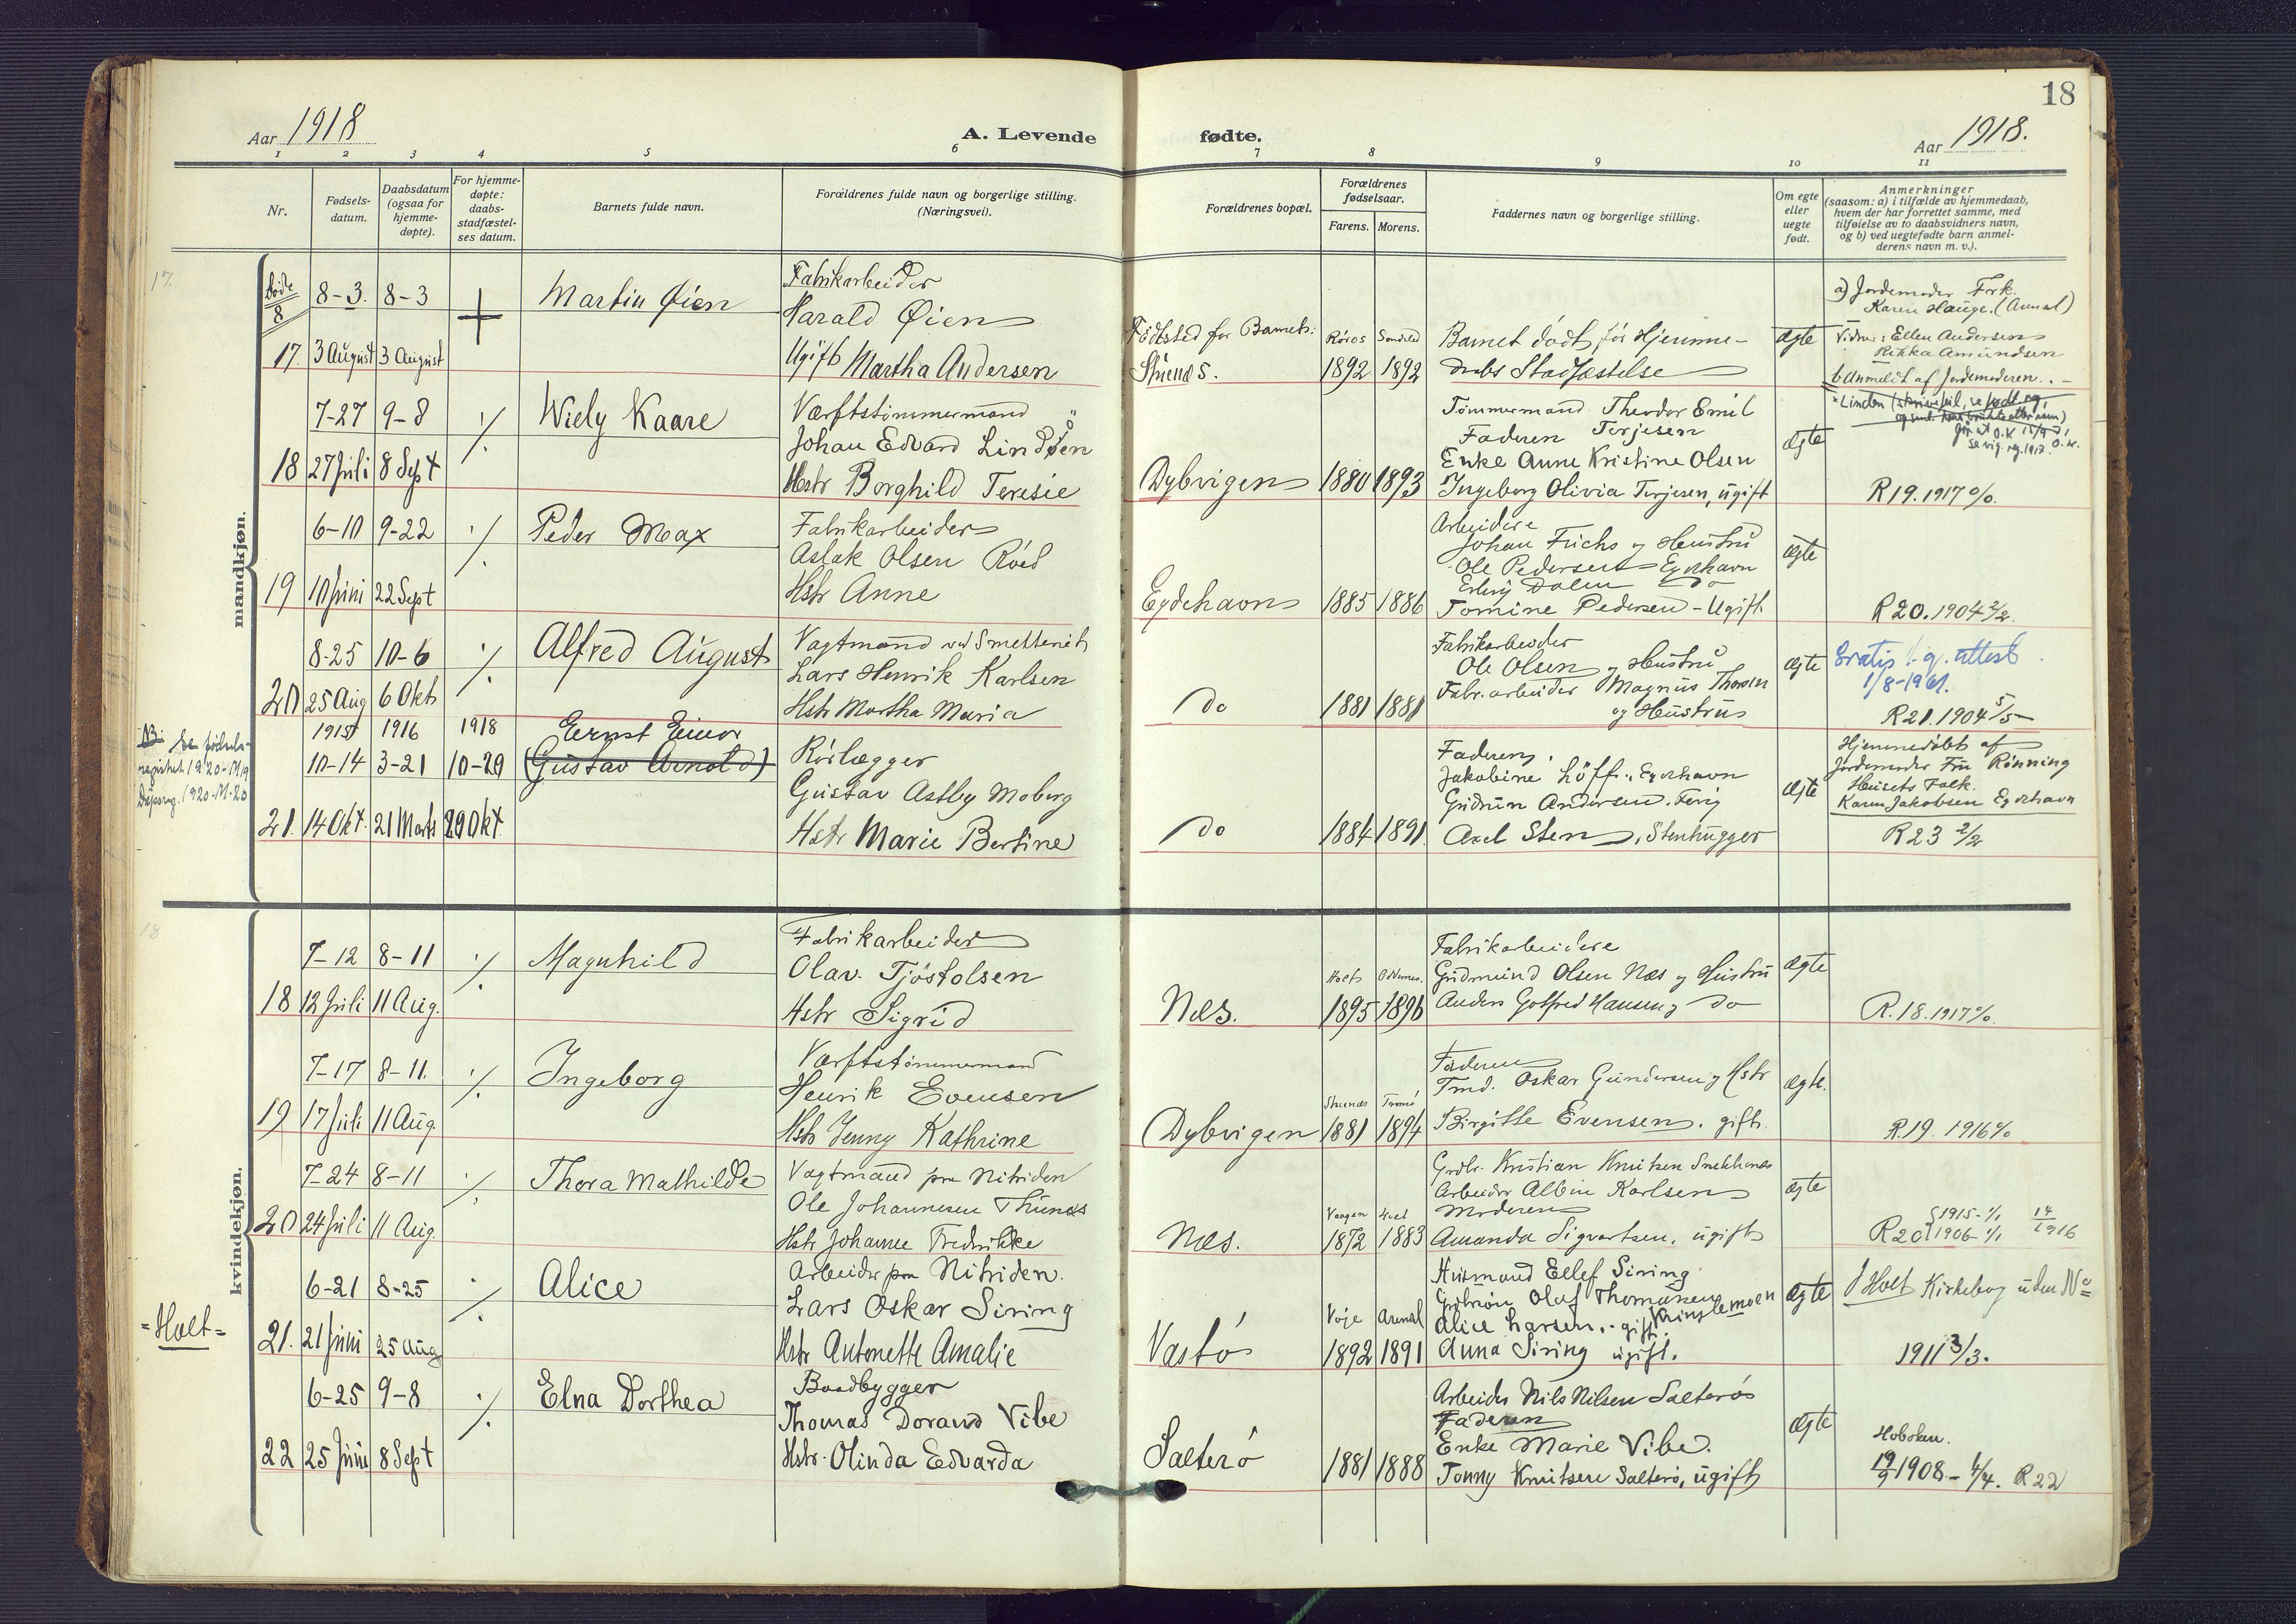 18
Aar 1918
A. Levende fødte.
Aar 1918.
1 2 3 4 5 6 7 8 9 10 11
Nr.
Fødsels-
datum.
Daabsdatum
(ogsaa for
hjemme-
døpte).
For hjemme-
døpte:
daabs-
stadfæstel-
ses datum.
Barnets fulde navn.
Forældrenes fulde navn og borgerlige stilling.
(Næringsvei).
Forældrenes bopæl.
Forældrenes
fødselsaar.
Farens. Morens.
Faddernes navn og borgerlige stilling.
Om egte
eller
uegte
født.
Anmerkninger
(saasom: a) i tilfælde av hjemmedaab,
hvem der har forrettet samme, med
tilføielse av to daabsvidners navn,
og b) ved uegtefødte barn anmel-
derens navn m. v.).
mandkjøn.
17
Døde
8
8-3. 8-3
Martin Øien
Fabrikarbeider
Harald Øien
17. 3 August 3 August
Ugift Martha Andersen
Fødested for Barnet:
Stuenes.
Røros
1892 1892
Barnet dødt før Hjemme-
daabs Stadfæstelse
Ægte
a) Jordemoder Frk.
Karen Hauge. (Arendal)
Vidner: Ellen Andersen
Rikka Amundsen
b Anmeldt af Jordemoderen. -
7-27 9-8
Wiely Kaare
18 27 Juli 8 Sept
Værftstømmermand
Johan Edvard Lindøen
Hstr Borghild Teresie
Dybvigen
1880 1893
Tømmermand Theodor Emil
Faderen Terjesen
Enke Anne Kristine Olsen
Ingeborg Olivia Terjesen, ugift
Ægte
R 19. 1917 %.
6-10 9-22
Peder Max
19 10 Juni 22 Sept
Fabrikarbeider
Aslak Olsen Røed
Hstr Anne
Eydehavn
1885 1886
Arbeidere
Johan Fuchs og Hustru
Ole Pedersen Eydehavn
Erling Dalen Do
Tomine Pedersen - Ugift
Ægte
R 20. 1904 2/2.
8-25 10-6
Alfred August
20 25 Aug 6 Okt
Vagtmand ved Smelteriet
Lars Henrik Karlsen
Hstr Martha Maria
Do
1881 1881
Fabrikarbeider
Ole Olsen og Hustru
Fabr.arbeider Magnus Thorsen
og Hustru
Ægte
Gratis attest
1/8-1961.
R 21. 1904 5/5
NB. Se fødsels-
registret 1920-M 19
1915 1916 1918
10-14 3-21 10-29
Ernst Einar
(Gustav Arnold)
21. 14 Okt. 21 Marts 29 Okt.
Rørlægger
Gustav Astby Moberg
Hstr Marie Bertine
Do
1884 1891.
Faderen.
Jakobine Løff., Eydehavn
Gudrun Andersen. Ferig
Axel Sten, Stenhugger
Ægte
Hjemmedøbt af
Jordemoder Fru Rønning
Husets Folk.
Karen Jakobsen Eydehavn
R 23 2/2
kvindekjøn.
18
7-12 8-11
Magnhild
18 12 Juli 11 Aug.
Fabrikarbeider
Olav. Tjøstolsen
Hstr Sigrid
Næs.
Holt
1895 1896
Fabrikarbeidere
Gudmund Olsen Næs og Hustru
Anders Gotfred Hansen, Do
Ægte
R. 18. 1917 %.
7-17 8-11.
Ingeborg
19 17 Juli 11 Aug.
Værftstømmermand
Henrik Evensen
Hstr Jenny Kathrine
Dybvigen
Stuenes Tromø
1881 1894
Faderen
Tmd. Oskar Gundersen og Hstr
Birgitte Evensen. gift.
Ægte.
R. 19. 1916 %
7-24 8-11
Thora Mathilde
20 24 Juli 11 Aug.
Vagtmand paa Nitriden
Ole Johannesen Thunæs
Hstr Johanne Fredrikke
Næs.
Vaagen Holt
1872 1883
Grdbr. Kristian Knutsen
Arbeider Albin Karlsen
Moderen
Amanda Sigvartsen, ugift
Ægte
R 20 1915 - 1/1 14
1906 - 1/1 1916
6-21 8-25
Alice
=Holt=
21. 21 Juni 25 Aug
Arbeider paa Nitriden.
Lars Oskar Siring
Hstr Antonette Amalie
Vastø
Voje Arendal
1892 1891
Husmand Ellef Siring
Olaf Thomassen
Alice Larsen. - gift. Kringlemoen
Anna Siring ugift.
Ægte
I Holt Kirkebog uden No
1911 3/3.
6-25 9-8
Elna Dorthea
22 25 Juni 8 Sept
Baadbygger
Thomas Dorand Vibe
Hstr. Olinda Edvarda
Salterø
1881 1888
Arbeider Nils Nilsen Salterø
Faderen
Enke Marie Vibe.
Tonny Knutsen Salterø, ugift
Ægte
Hoboken.
19/9 1908 - 4/4. R 22